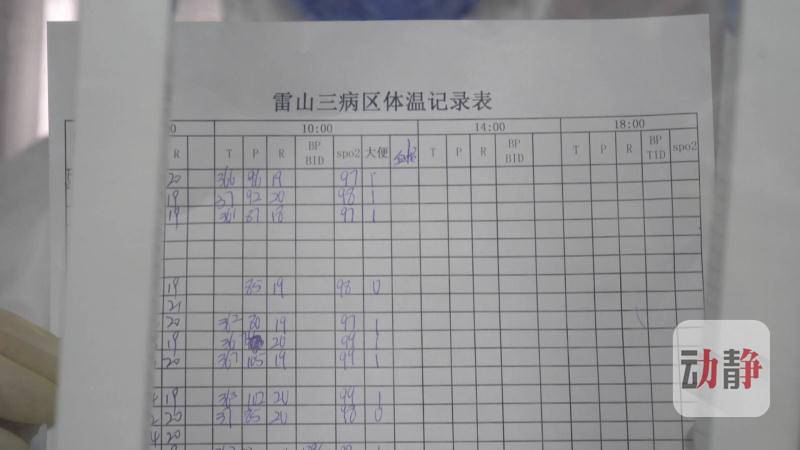 雷山三病区体温记录表
0 10:00 14:00 18:00
R T P R BP BID spo2 大便 T P R BP BID T P R BP TID spo2
20 36⁶ 96 19 97 1
19 37 92 20 98 1
19 36¹ 87 18 97 1
19 85 19 98 0
21
20 36² 80 19 97 1
19 36 20 99 1
20 36⁷ 105 19 99 1
19 36³ 102 20 99 1
20 37 85 20 98 0
20
动静